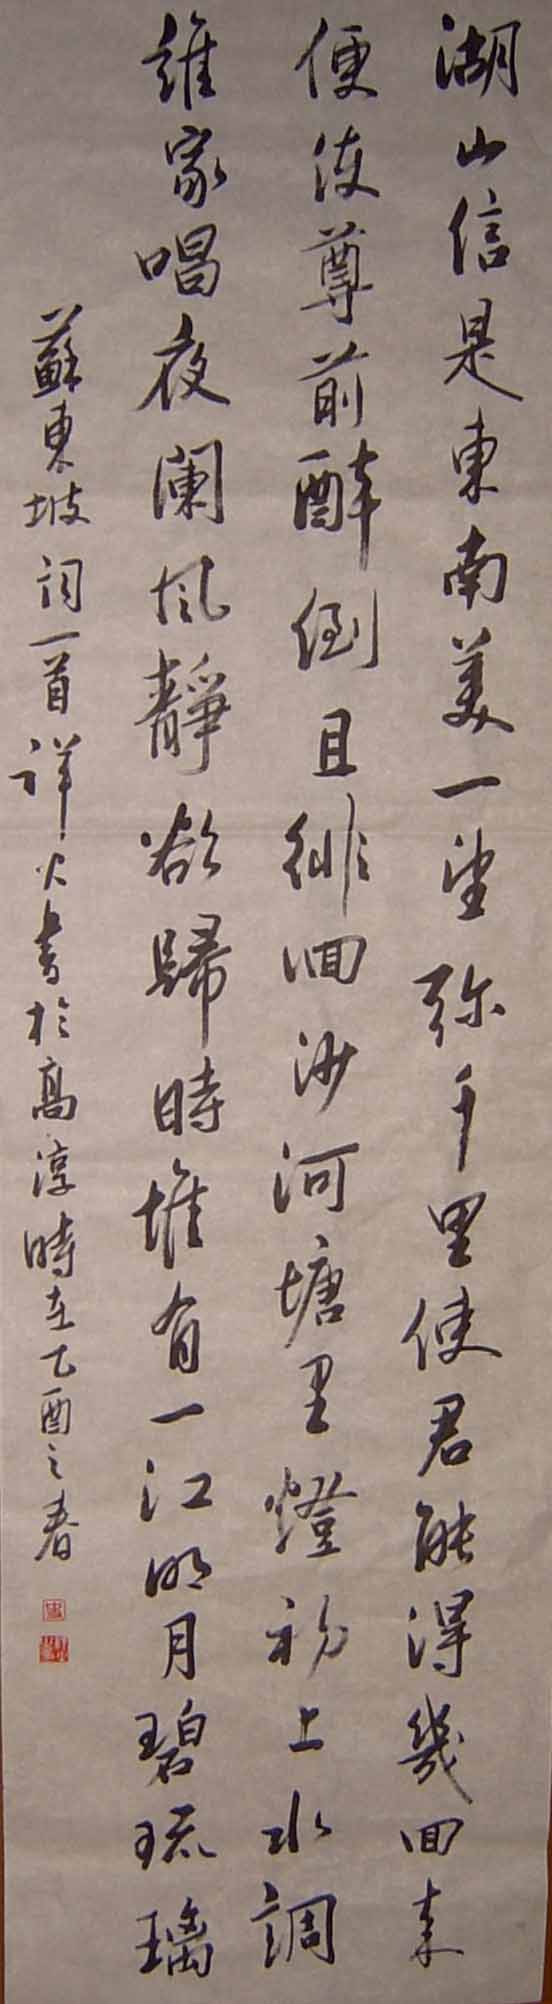 湖山信是東南美一望弥千里使君能得幾回来
便使尊前醉倒且徘徊沙河塘里燈初上水調
誰家唱夜闌風靜欲歸時惟有一江明月碧琉璃
蘇東坡詞一首詳火書於高淳時在乙酉之春